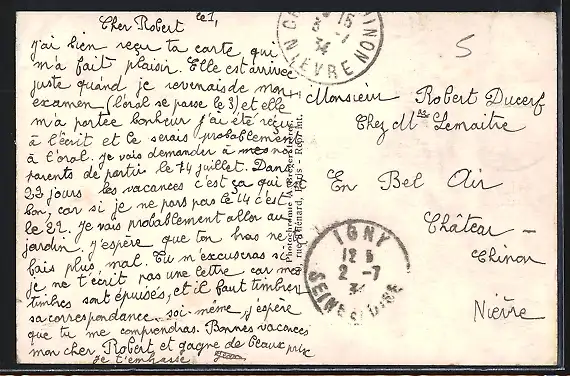 Cher Robert le 1,
j'ai bien reçu ta carte qui
m'a fait plaisir. Elle est arrivée
juste quand je revenais de mon
examen (l'oral se passe le 3) et elle
m'a portée bonheur j'ai été reçue
à l'écrit et le serais probablement
à l'oral. je vais demander à mes
parents de partir le 14 juillet. Dans
23 jours les vacances c'est ça qui
bon, car si je ne pars pas le 14 c'est
le 22. je vais probablement aller au
jardin j'espère que ton bras ne
fais plus mal. Tu m'excuseras si
je ne t'écrit pas une lettre car mes
timbres sont épuisés, et il faut timbrer
sa correspondance soi-même, j'espère
que tu me comprendras. Bonnes vacances
mon cher Robert et gagne de beaux prix
Je t'embrasse
Photochromie
Paris
NIÈVRE
5
Monsieur Robert Ducerf
Chez Mme Lemaitre
En Bel Air
Château-
Chinon
Nièvre
IGNY
12
2 -7
34
SEINE & OISE